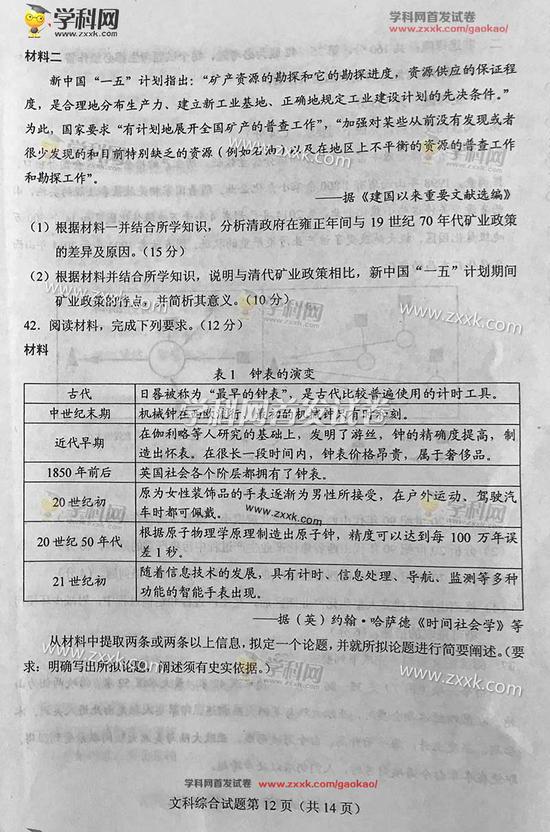 学科网
www.zxxk.com
学科网首发试卷
www.zxxk.com/gaokao/
材料二
新中国“一五”计划指出：“矿产资源的勘探和它的勘探进度，资源供应的保证程
度，是合理地分布生产力、建立新工业基地、正确地规定工业建设计划的先决条件。”
为此，国家要求“有计划地展开全国矿产的普查工作”，“加强对某些从前没有发现或者
很少发现的和目前特别缺乏的资源（例如石油）以及在地区上不平衡的资源的普查工作
和勘探工作”。
——据《建国以来重要文献选编》
（1）根据材料一并结合所学知识，分析清政府在雍正年间与 19 世纪 70 年代矿业政策
的差异及原因。（15 分）
（2）根据材料并结合所学知识，说明与清代矿业政策相比，新中国“一五”计划期间
矿业政策的特点，并简析其意义。（10 分）
42．阅读材料，完成下列要求。（12 分）
材料
表 1 钟表的演变
古代 日晷被称为“最早的钟表”，是古代比较普遍使用的计时工具。
中世纪末期 机械钟在 的机械钟只有时 刻。
近代早期 在伽利略等人研究的基础上，发明了游丝，钟的精确度提高，制
造出怀表。在很长一段时间内，钟表价格昂贵，属于奢侈品。
1850 年前后 英国社会各个阶层都拥有了钟表。
20 世纪初 原为女性装饰品的手表逐渐为男性所接受，在户外运动、驾驶汽
车时都可佩戴。
20 世纪 50 年代 根据原子物理学原理制造出原子钟，精度可以达到每 100 万年误
差 1 秒。
21 世纪初 随着信息技术的发展，具有计时、信息处理、导航、监测等多种
功能的智能手表出现。
——据（英）约翰·哈萨德《时间社会学》等
从材料中提取两条或两条以上信息，拟定一个论题，并就所拟论题进行简要阐述。（要
求：明确写出所拟论题，阐述须有史实依据。）
学科网首发试卷
www.zxxk.com/gaokao/
文科综合试题第 12 页（共 14 页）